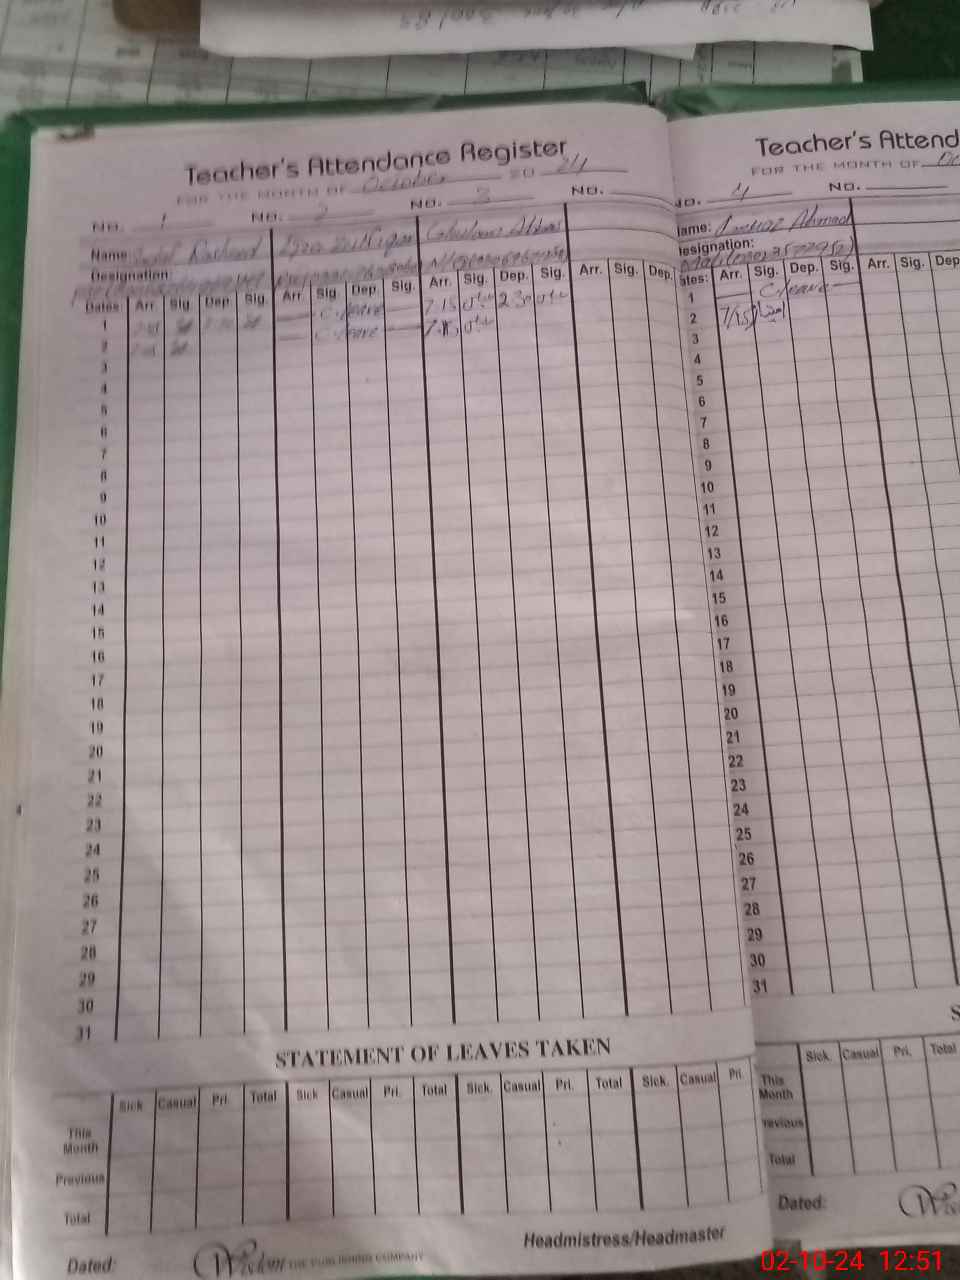 Teacher's Attendance Register
FOR THE MONTH OF October 20 24
No. 1 No. 2 No. 3 No.
Name Rasheed
Designation:
Dates: Arr. Sig. Dep. Sig. Arr. Sig. Dep. Sig. Arr. Sig. Dep. Sig. Arr. Sig. Dep.
1 C.leave 7.15 2 30
2 C.leave 7.15
3
4
5
6
7
8
9
10
11
12
13
14
15
16
17
18
19
20
21
22
23
24
25
26
27
28
29
30
31
STATEMENT OF LEAVES TAKEN
Sick Casual Pri. Total Sick Casual Pri. Total Sick. Casual Pri. Total Sick. Casual Pri.
This
Month
Previous
Total
Dated: Wisdom Headmistress/Headmaster
Teacher's Attend
FOR THE MONTH OF
No. 4 No.
ame: Ahmad
esignation:
ates: Arr. Sig. Dep. Sig. Arr. Sig. Dep
1 C.leave
2 7/15
3
4
5
6
7
8
9
10
11
12
13
14
15
16
17
18
19
20
21
22
23
24
25
26
27
28
29
30
31
S
Sick. Casual Pri. Total
This
Month
revious
Total
Dated: Wis
02-10-24 12:51